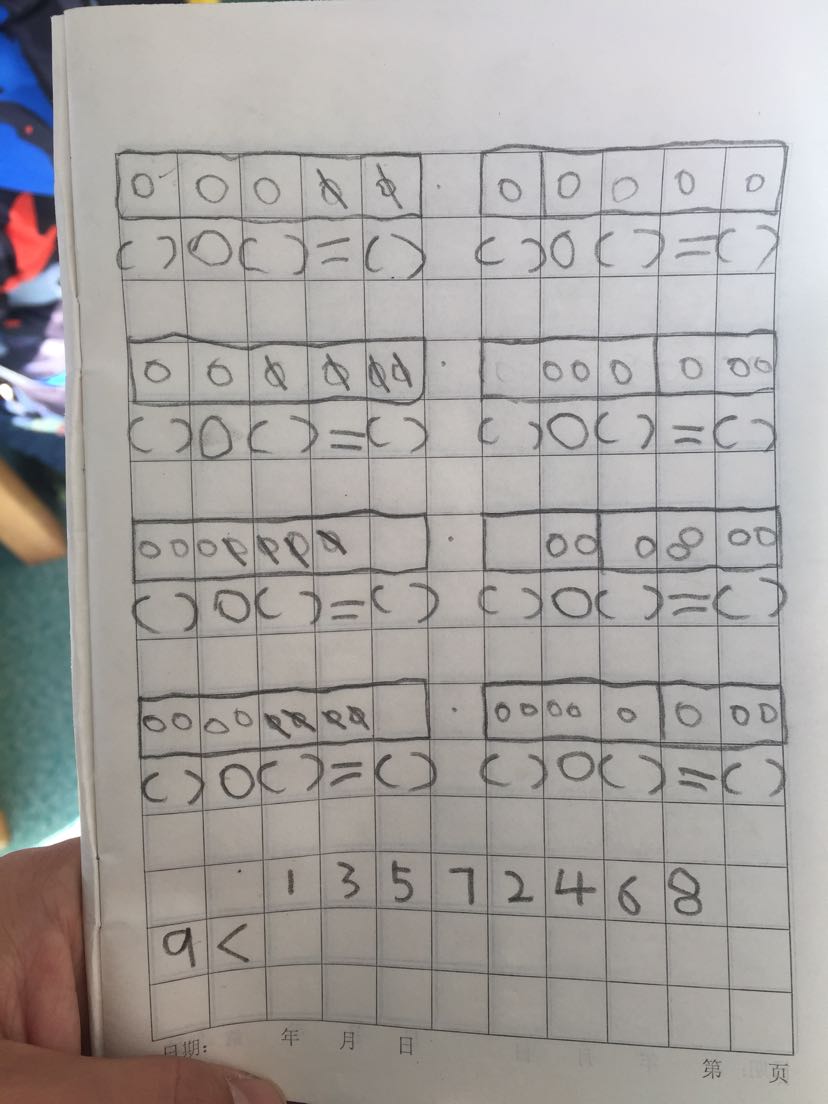 ( ) ○ ( ) = ( ) ( ) ○ ( ) = ( )
( ) ○ ( ) = ( ) ( ) ○ ( ) = ( )
( ) ○ ( ) = ( ) ( ) ○ ( ) = ( )
( ) ○ ( ) = ( ) ( ) ○ ( ) = ( )
1 3 5 7 2 4 6 8
9 <
日期: 年 月 日
第 页